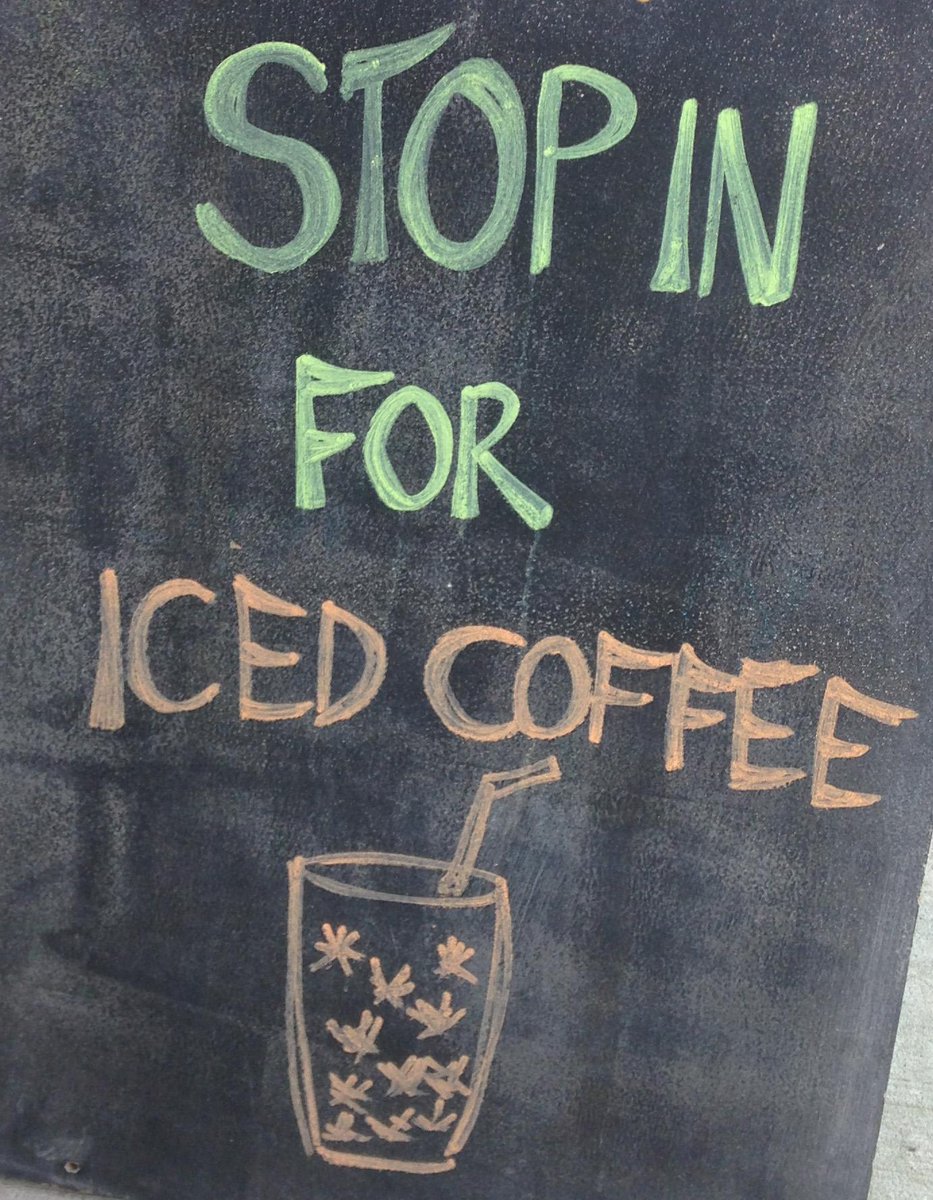 STOP IN
FOR
ICED COFFEE